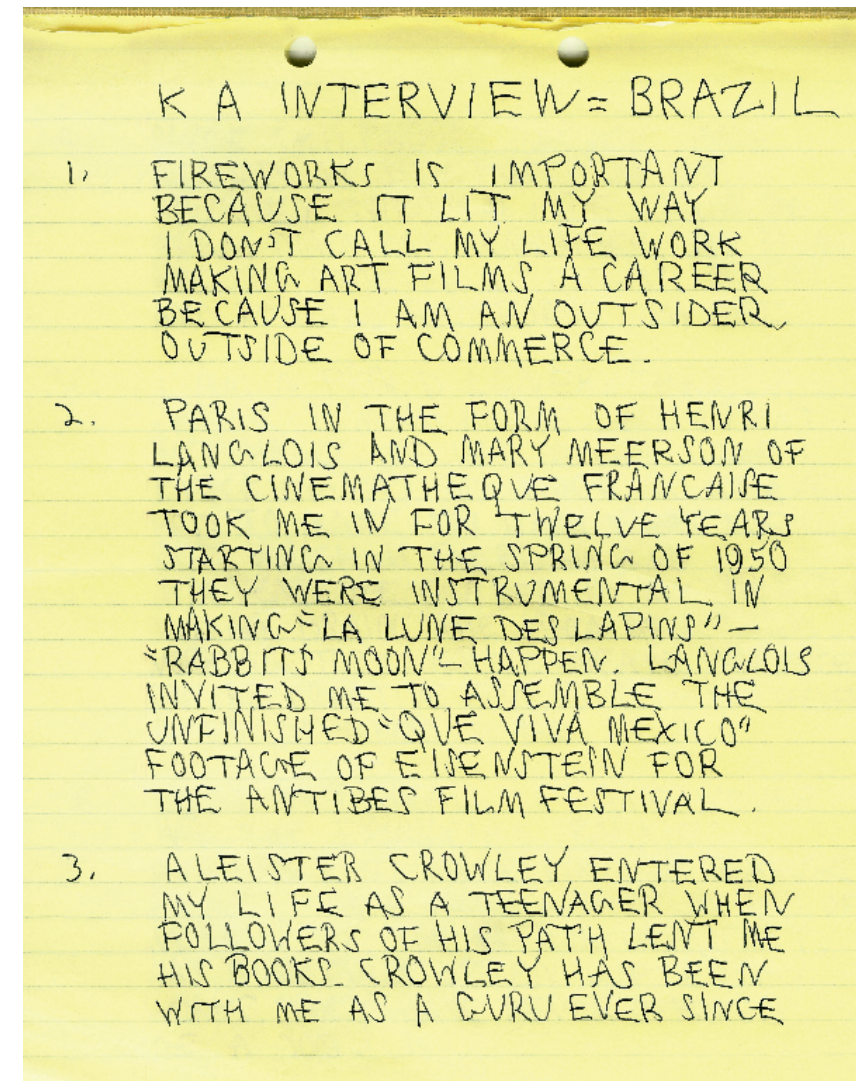 K A INTERVIEW = BRAZIL
1. FIREWORKS IS IMPORTANT
BECAUSE IT LIT MY WAY
I DON'T CALL MY LIFE WORK
MAKING ART FILMS A CAREER
BECAUSE I AM AN OUTSIDER,
OUTSIDE OF COMMERCE.
2. PARIS IN THE FORM OF HENRI
LANGLOIS AND MARY MEERSON OF
THE CINEMATHEQUE FRANCAISE
TOOK ME IN FOR TWELVE YEARS
STARTING IN THE SPRING OF 1950
THEY WERE INSTRUMENTAL IN
MAKING "LA LUNE DES LAPINS" —
"RABBITS MOON" — HAPPEN. LANGLOIS
INVITED ME TO ASSEMBLE THE
UNFINISHED "QUE VIVA MEXICO"
FOOTAGE OF EISENSTEIN FOR
THE ANTIBES FILM FESTIVAL.
3. ALEISTER CROWLEY ENTERED
MY LIFE AS A TEENAGER WHEN
FOLLOWERS OF HIS PATH LENT ME
HIS BOOKS. CROWLEY HAS BEEN
WITH ME AS A GURU EVER SINCE